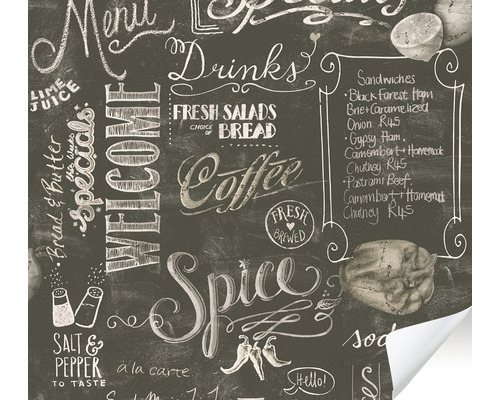 Menu
Drinks
LIME
JUICE
Bread & Butter
Specials
WELCOME
FRESH SALADS
CHOICE OF BREAD
Coffee
FRESH
BREWED
Sandwiches
• Black Forest Ham
Brie + Caramelized
Onion R45
• Gypsy Ham,
Camembert + Homemade
Chutney R45
• Pastrami Beef,
Camembert + Homemade
Chutney R45
Spice
SALT &
PEPPER
TO TASTE
à la carte
Hello!